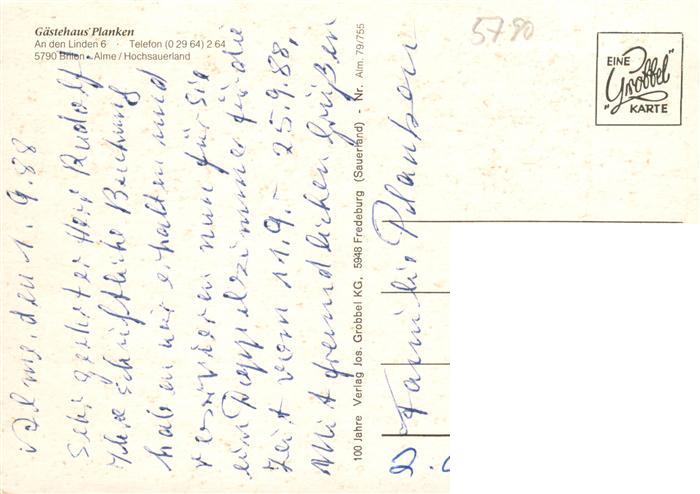 Gästehaus Planken
An den Linden 6 · Telefon (0 29 64) 2 64
5790 Brilon-Alme / Hochsauerland
5790
EINE
"Grobbel"
KARTE
Alme, den 1.9.88
Sehr geehrter Herr Rudolf
Ihre schriftliche Buchung
haben wir erhalten und
reservieren nun für Sie
ein Doppelzimmer für die
Zeit vom 11.9. - 25.9.88,
Mit freundlichen Grüßen
100 Jahre Verlag Jos. Grobbel KG, 5948 Fredeburg (Sauerland) - Nr. Alm. 79/755
Familie Planken